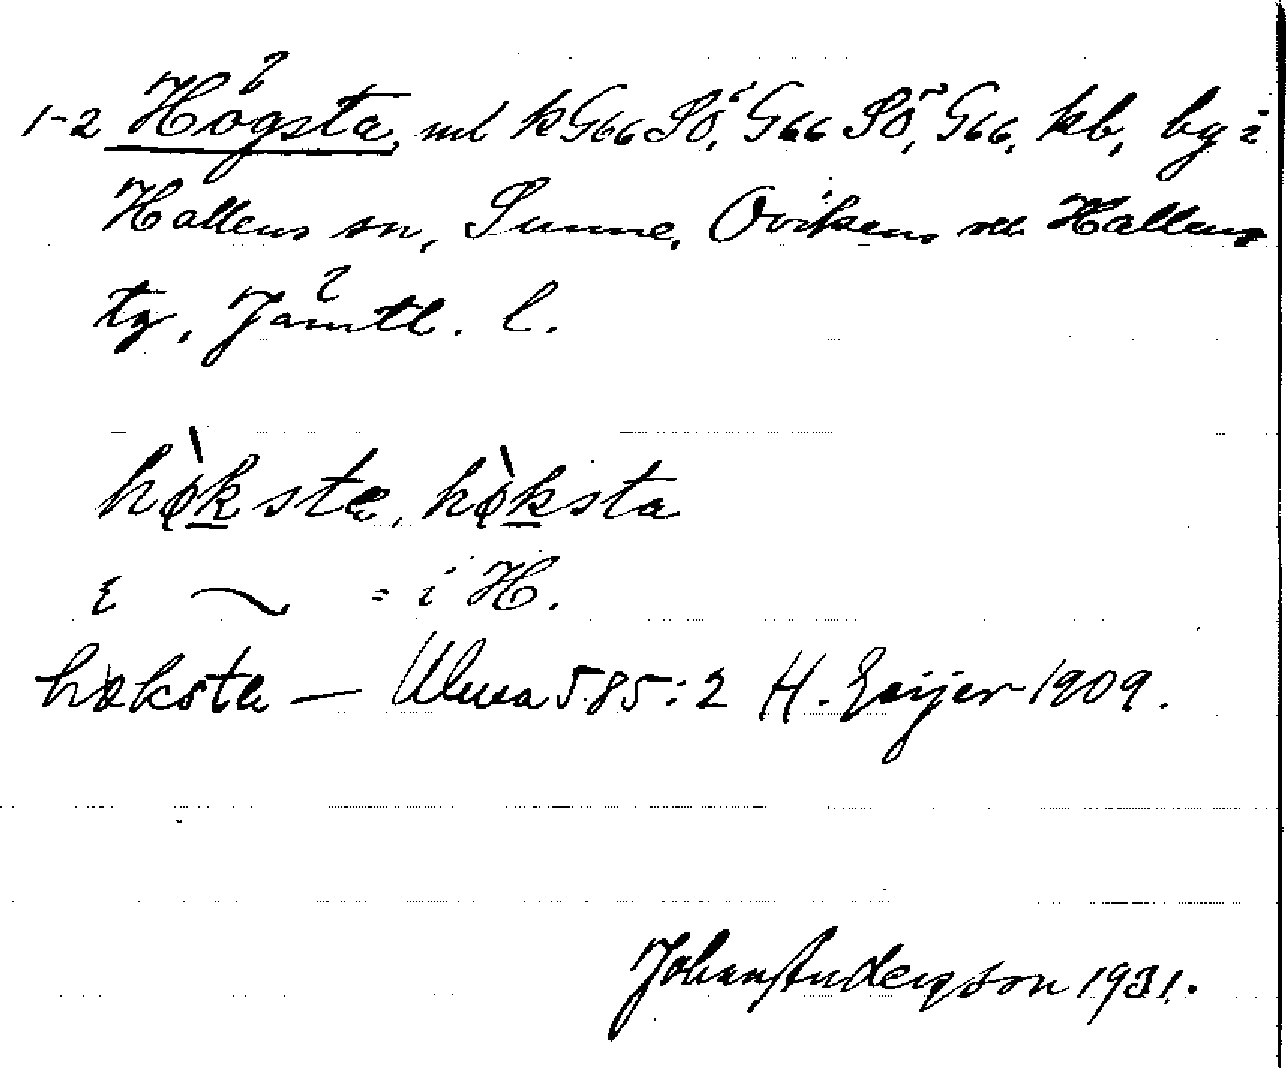 1-2 Högsta, ml k G66 SÖ, G66 SÖ, G66, kb, by i
Hallens sn, Sunne, Ovikens och Hallens
tg, Jämtl. l.
hø̀ksta, hø̀ksta
i H.
høksta — Ulma 585:2 H. Geijer 1909.
Johan Anderson 1931.